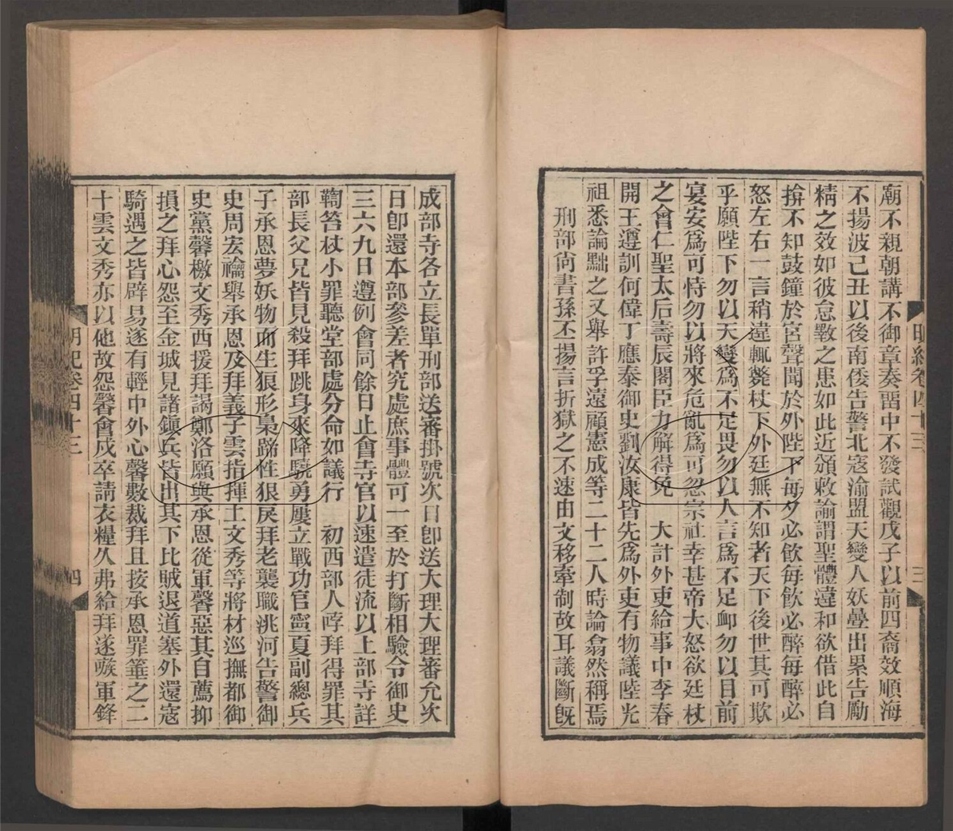 明紀卷四十三　三
廟不親朝講不御章奏畱中不發試觀戊子以前四裔效順海
不揚波己丑以後南倭告警北寇渝盟天變人妖疊出累告勵
精之效如彼怠斁之患如此近頒敕諭謂聖體違和欲借此自
揜不知鼓鐘於宮聲聞於外陛下每夕必飲每飲必醉每醉必
怒左右一言稍違輒斃杖下外廷無不知者天下後世其可欺
乎願陛下勿以天變爲不足畏勿以人言爲不足卹勿以目前
宴安爲可恃勿以將來危亂爲可忽宗社幸甚帝大怒欲廷杖
之會仁聖太后壽辰閣臣力解得免　大計外吏給事中李春
開王遵訓何偉丁應泰御史劉汝康皆先爲外吏有物議陸光
祖悉論黜之又舉許孚遠顧憲成等二十二人時論翕然稱焉
刑部尙書孫丕揚言折獄之不速由文移牽制故耳議斷旣
成部寺各立長單刑部送審掛號次日卽送大理大理審允次
日卽還本部參差者究處庶事體可一至於打斷相驗令御史
三六九日遵例會同餘日止會寺官以速遣徒流以上部寺詳
鞫笞杖小罪聽堂部處分命如議行　初西部人哱拜得罪其
部長父兄皆見殺拜跳身來降驍勇屢立戰功官寧夏副總兵
子承恩夢妖物而生狼形梟蹄性狠戾拜老襲職洮河告警御
史周宏禴舉承恩及拜義子雲指揮土文秀等將材巡撫都御
史黨馨檄文秀西援拜謁鄭洛願與承恩從軍馨惡其自薦抑
損之拜心怨至金城見諸鎭兵皆出其下比賊退道塞外還寇
騎遇之皆辟易遂有輕中外心馨數裁拜且按承恩罪箠之二
十雲文秀亦以他故怨馨會戍卒請衣糧久弗給拜遂嗾軍鋒
明紀卷四十三　四